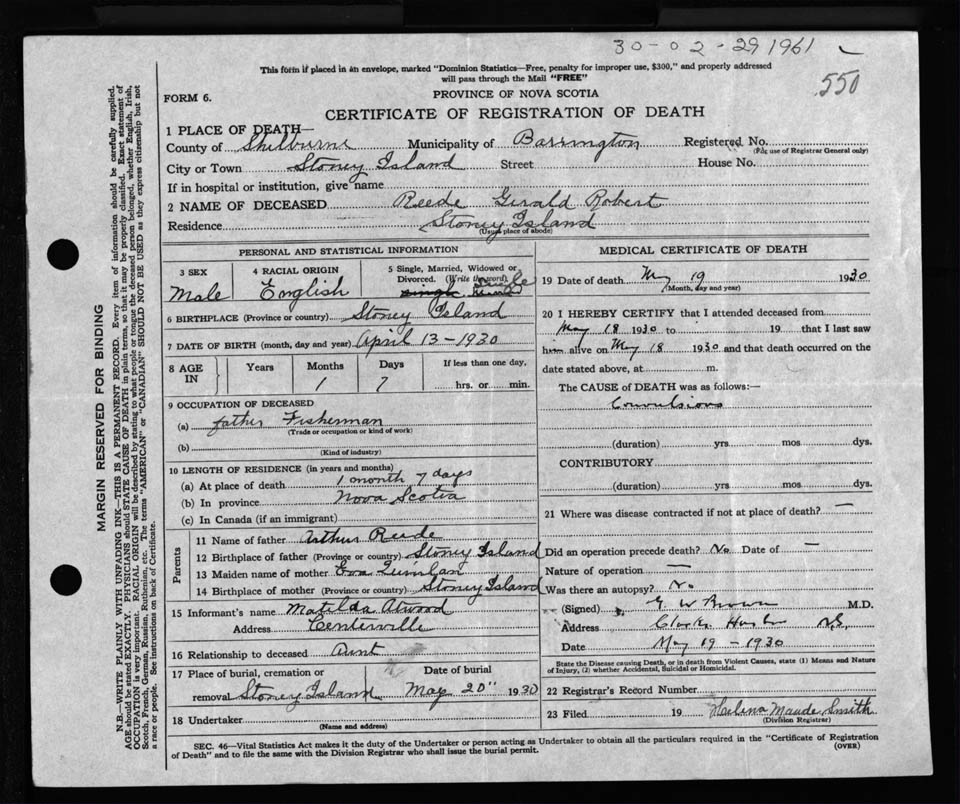 30-02-291961
550
This form if placed in an envelope, marked "Dominion Statistics—Free, penalty for improper use, $300," and properly addressed
will pass through the Mail "FREE"
FORM 6.
PROVINCE OF NOVA SCOTIA
CERTIFICATE OF REGISTRATION OF DEATH
1 PLACE OF DEATH—
County of Shelburne Municipality of Barrington Registered No.
(For use of Registrar General only)
City or Town Stoney Island Street House No.
If in hospital or institution, give name
2 NAME OF DECEASED Reede Girald Robert
Residence Stoney Island
(Usual place of abode)
PERSONAL AND STATISTICAL INFORMATION
3 SEX
Male
4 RACIAL ORIGIN
English
5 Single, Married, Widowed or
Divorced. (Write the word)
Single
6 BIRTHPLACE (Province or country) Stoney Island
7 DATE OF BIRTH (month, day and year) April 13-1930
8 AGE IN
Years Months Days If less than one day,
1 7 hrs. or min.
9 OCCUPATION OF DECEASED
(a) father Fisherman
(Trade or occupation or kind of work)
(b)
(Kind of industry)
10 LENGTH OF RESIDENCE (in years and months)
(a) At place of death 1 month 7 days
(b) In province Nova Scotia
(c) In Canada (if an immigrant)
Parents
11 Name of father Arthur Reede
12 Birthplace of father (Province or country) Stoney Island
13 Maiden name of mother Eva Quinlan
14 Birthplace of mother (Province or country) Stoney Island
15 Informant's name Matilda Atwood
Address Centerville
16 Relationship to deceased Aunt
17 Place of burial, cremation or Date of burial
removal Stoney Island May 20" 1930
18 Undertaker
(Name and address)
MEDICAL CERTIFICATE OF DEATH
19 Date of death May 19 1930
(Month, day and year)
20 I HEREBY CERTIFY that I attended deceased from
May 18 1930 to 19 that I last saw
him alive on May 18 1930 and that death occurred on the
date stated above, at m.
The CAUSE of DEATH was as follows:—
Convulsions
(duration) yrs mos dys.
CONTRIBUTORY
(duration) yrs mos dys.
21 Where was disease contracted if not at place of death? —
Did an operation precede death? No Date of —
Nature of operation —
Was there an autopsy? No
(Signed) G W Brown M.D.
Address Clarks Harbor N.S.
Date May 19-1930
State the Disease causing Death, or in death from Violent Causes, state (1) Means and Nature
of Injury, (2) whether Accidental, Suicidal or Homicidal.
22 Registrar's Record Number
23 Filed 19 Helena Maude Smith
(Division Registrar)
SEC. 46—Vital Statistics Act makes it the duty of the Undertaker or person acting as Undertaker to obtain all the particulars required in the "Certificate of Registration
of Death" and to file the same with the Division Registrar who shall issue the burial permit. (OVER)
MARGIN RESERVED FOR BINDING
N.B.—WRITE PLAINLY WITH UNFADING INK—THIS IS A PERMANENT RECORD. Every item of information should be carefully supplied.
AGE should be stated EXACTLY. PHYSICIANS should STATE CAUSE OF DEATH in plain terms, so that it may be properly classified. Exact statement of
OCCUPATION is very important. RACIAL ORIGIN will be described by stating to what people or tongue the deceased person belonged, whether English, Irish,
Scotch, French, German, Russian, Ruthenian, etc. The terms "AMERICAN" or "CANADIAN" SHOULD NOT BE USED as they express citizenship but not
a race or people. See instructions on back of Certificate.